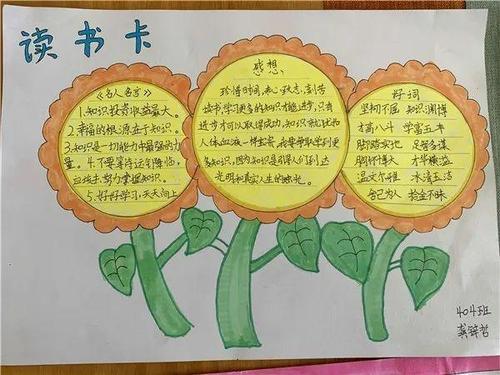 读书卡
《名人名言》
1.知识投资收益最大。
2.幸福的根源在于知识。
3.知识是一切能力中最强的力
量。4.不要等待运气降临,
应该去努力掌握知识。
5.好好学习,天天向上
感想
珍惜时间,专心致志,刻苦
读书,学习更多的知识才能进步,只有
进步才可以取得成功,知识就犹如
人体血液一样宝贵,我要争取学到更
多知识,因为知识是引导人们到达
光明和真实人生的烛光。
好词
坚韧不屈 知识渊博
才高八斗 学富五车
脚踏实地 足智多谋
胸怀博大 才华横溢
温文尔雅 冰清玉洁
舍己为人 拾金不昧
404班